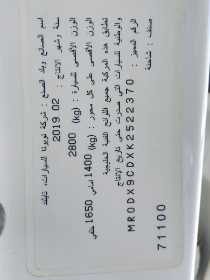 اسم الصانع وبلد الصنع : شركة تويوتا للسيارات، تايلند
سنة وشهر الانتاج : 2019 02
الوزن الاقصى للسيارة : (kg) 2800
الوزن الاقصى على كل محور : (kg) 1400 امامي 1650 خلفي
تطابق هذه المركبة جميع اللوائح الفنية الخليجية
والوطنية للسيارات التي صدرت حتى تاريخ الانتاج
الرقم المميز : MR0DX9CDXK2522370
صنف : شاحنة
71100